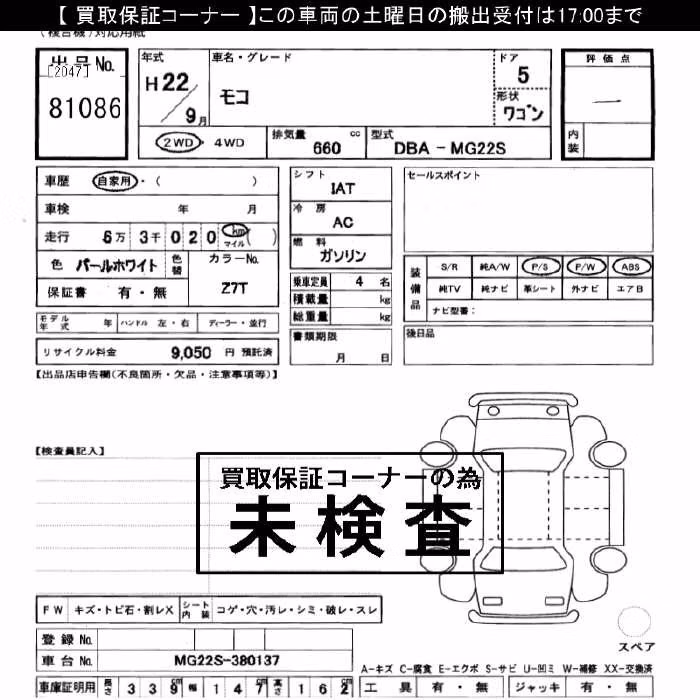 【 買取保証コーナー 】この車両の土曜日の搬出受付は17:00まで
(複合機)対応用紙
出品No.
[2047]
81086
年式
H22
9月
車名・グレード
モコ
ドア
5
形状
ワゴン
評価点
―
内装
2WD・4WD
排気量
660
cc
型式
DBA - MG22S
車歴 自家用・( )
車検 年 月
走行 6万 3千 0 2 0 km マイル ( )
色 パールホワイト 色替
カラーNo.
Z7T
保証書 有・無
シフト
IAT
冷房
AC
燃料
ガソリン
乗車定員 4 名
積載量 kg
総重量 kg
書類期限
月 日
セールスポイント
装備品
S/R 純A/W P/S P/W ABS
純TV 純ナビ 革シート 外ナビ エアB
ナビ型番:
後日品
モデル年式 年 ハンドル 左・右 ディーラー・並行
リサイクル料金 9,050 円 預託済
【出品店申告欄(不良個所・欠品・注意事項等)】
【検査員記入】
買取保証コーナーの為
未検査
FW キズ・トビ石・割レX シート内装 コゲ・穴・汚レ・シミ・破レ・スレ
登録No.
車台No. MG22S-380137
車庫証明用 長さ 3 3 9 cm 幅 1 4 7 cm 高さ 1 6 2 cm
スペア
A-キズ C-腐食 E-エクボ S-サビ U-凹ミ W-補修 XX-交換済
工具 有・無 ジャッキ 有・無